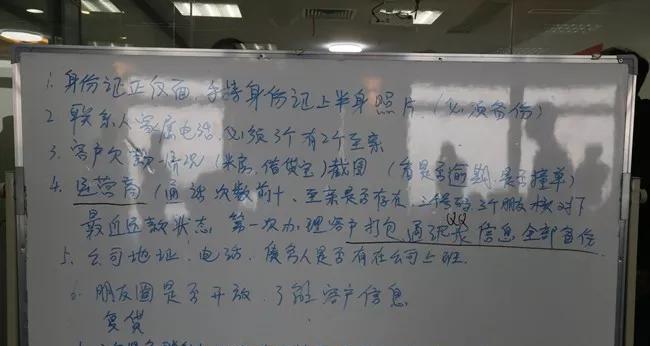 1. 身份证正反面，手持身份证上半身照片，（必须备份）
2 联系人家属电话，必须3个有2个至亲
3. 客户欠款情况（米房，借贷宝）截图（看是否逾期，是否撞单）
4. 运营商（通话次数前十、至亲是否存在 3个朋友核对下
最近还款状态，第一次办理客户打包通讯录 QQ 信息全部备份
5. 公司地址，电话，债务人是否有在公司上班.
6. 朋友圈是否开放，了解客户信息
复贷